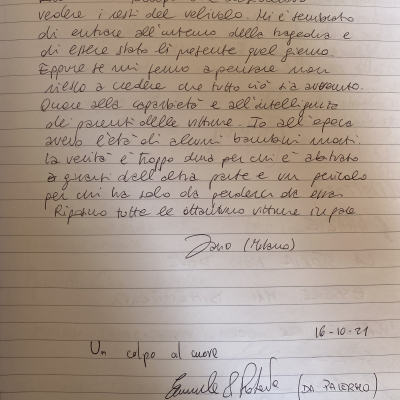 vedere i resti del velivolo. Mi è sembrato
di entrare all'interno della tragedia e
di essere stato lì presente quel giorno.
Eppure se mi fermo a pensare non
riesco a credere che tutto ciò sia avvenuto.
Onore alla caparbietà e all'intelligenza
dei parenti delle vittime. Io all'epoca
avevo l'età di alcuni bambini morti.
La verità è troppo dura per chi è abituato
a guardarti dall'altra parte e un pericolo
per chi ha solo da perderci da essa.
Riposino tutte le ottantuno vittime in pace
(Milano)
16-10-21
Un colpo al cuore
(DA PALERMO)